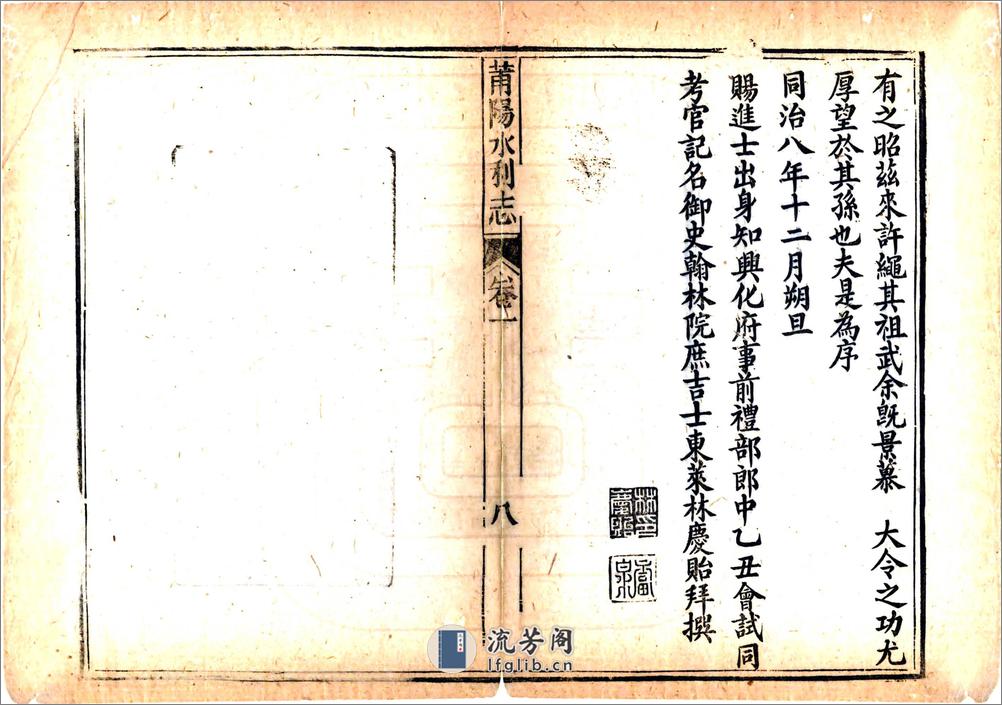 有之昭茲來許繩其祖武余旣景慕　大令之功尤
厚望於其孫也夫是為序
同治八年十二月朔旦
賜進士出身知興化府事前禮部郎中乙丑會試同
考官記名御史翰林院庶吉士東萊林慶貽拜撰
林印慶貽
莆陽水利志
卷一
八
流芳阁
lfglib.cn